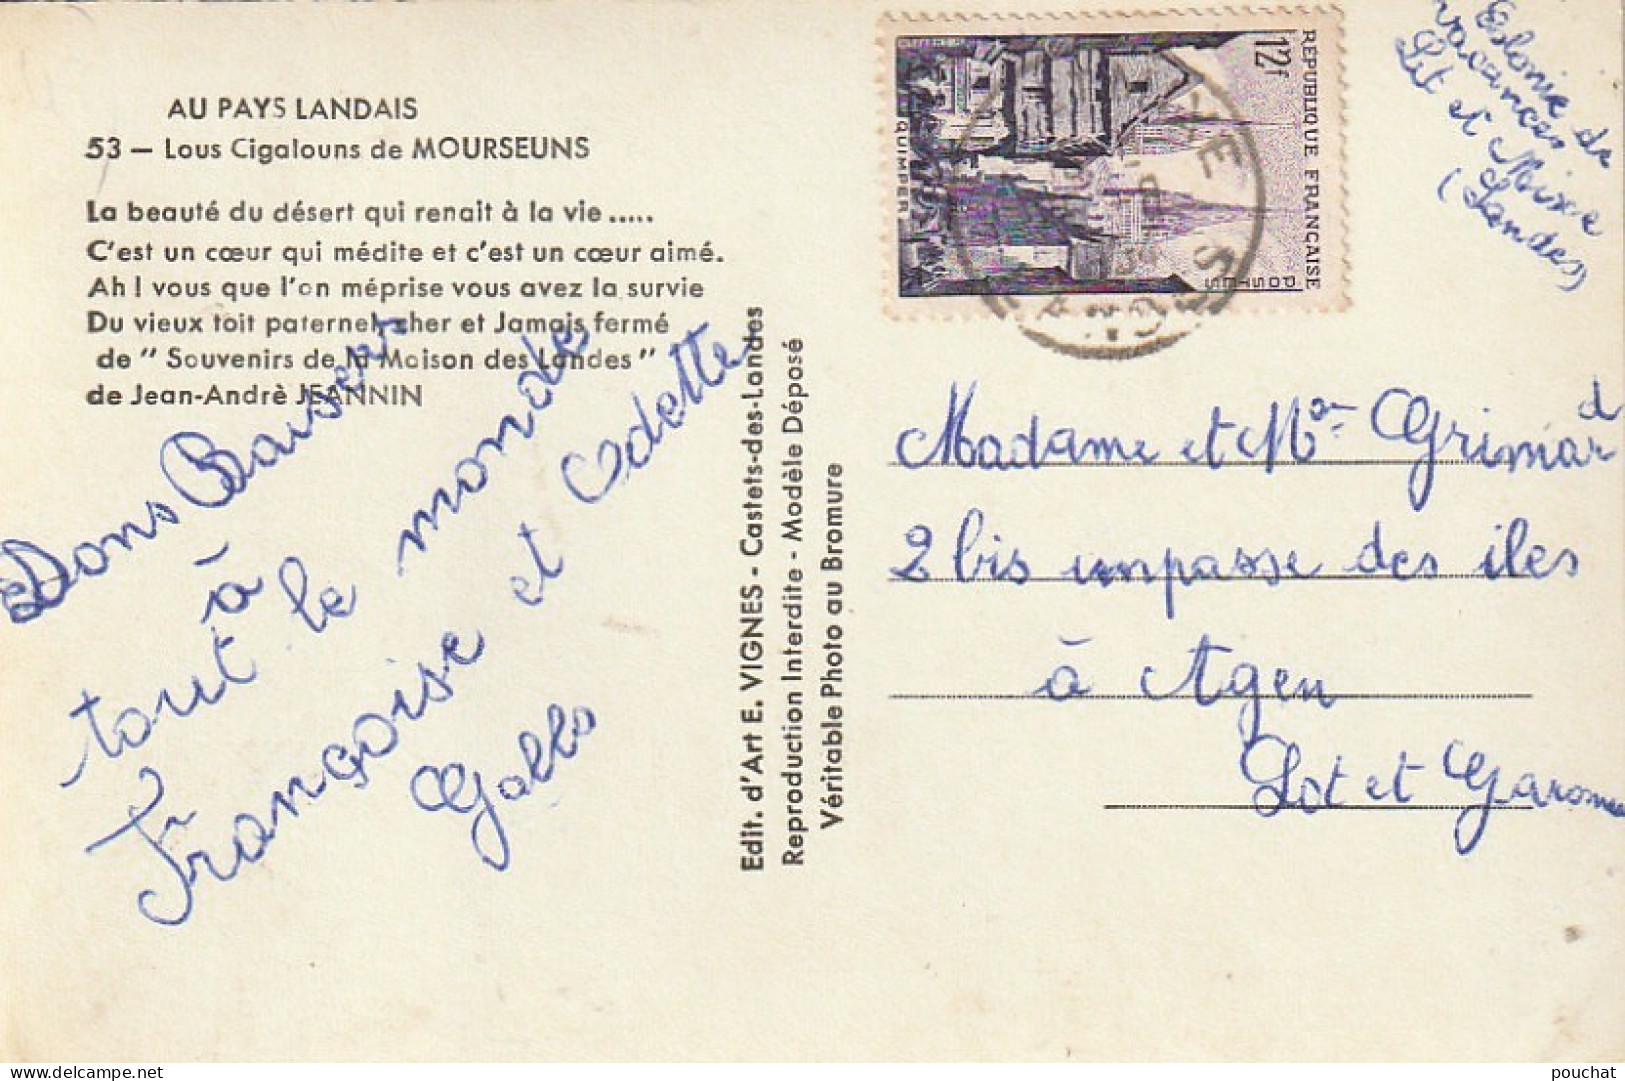 AU PAYS LANDAIS
53 — Lous Cigalouns de MOURSEUNS
La beauté du désert qui renait à la vie .....
C'est un cœur qui médite et c'est un cœur aimé.
Ah ! vous que l'on méprise vous avez la survie
Du vieux toit paternel, cher et Jamais fermé
de " Souvenirs de la Maison des Landes "
de Jean-Andrè JEANNIN
Bons Baisers
à
tout le monde
Françoise et Odette
Edit. d'Art E. VIGNES - Castets-des-Landes
Reproduction Interdite - Modèle Déposé
Véritable Photo au Bromure
RÉPUBLIQUE FRANÇAISE
12f
POSTES
QUIMPER
Colonie de
vacances
Lit et Mixe
(Landes)
Madame et Mr Grimard
2 bis impasse des iles
à Agen
Lot et Garonne
pouchat